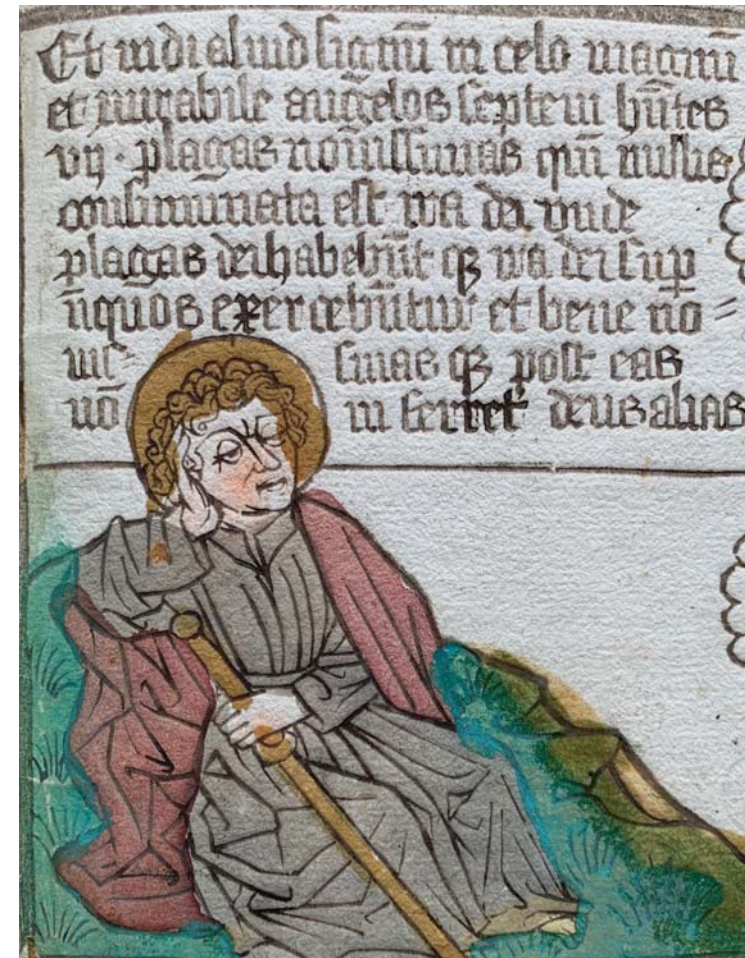 Et vidi aliud signū in celo magnū
et mirabile angelos septem hn̄tes
vij · plagas novissimas qm̄ in illis
consummata est ira dei vnde
plagas dei habebūt qꝫ ira dei sup̄
īiquos exercebūtur et bene no=
vis= simas qꝫ post eas
nō in ferret deus alias